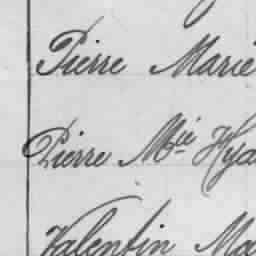 Pierre Marie
Pierre Mie Hya
Valentin Ma